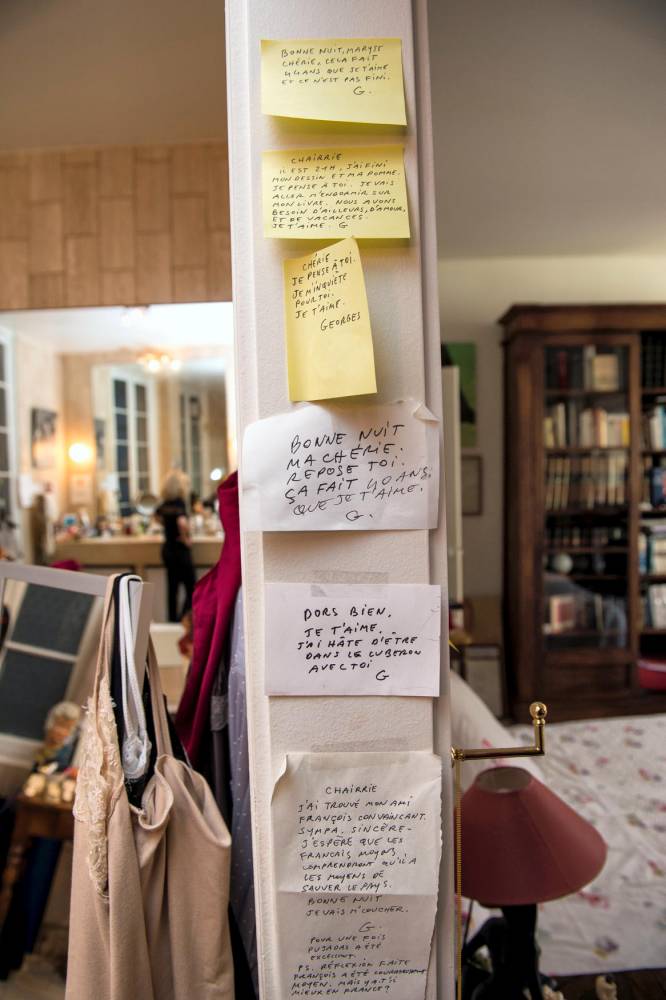 BONNE NUIT, MARYSE
CHÉRIE, CELA FAIT
44 ANS QUE JE T'AIME
ET CE N'EST PAS FINI.
G.
CHAIRRIE
IL EST 21H, J'AI FINI
MON DESSIN ET MA POMME.
JE PENSE À TOI. JE VAIS
ALLER M'ENDORMIR SUR
MON LIVRE. NOUS AVONS
BESOIN D'AILLEURS, D'AMOUR,
ET DE VACANCES.
JE T'AIME. G
CHÉRIE
JE PENSE À TOI.
JE M'INQUIÈTE
POUR TOI.
JE T'AIME.
GEORGES
BONNE NUIT
MA CHÉRIE.
REPOSE TOI.
ÇA FAIT 40 ANS
QUE JE T'AIME.
G.
DORS BIEN,
JE T'AIME.
J'AI HÂTE D'ÊTRE
DANS LE LUBERON
AVEC TOI
G
CHAIRRIE
J'AI TROUVÉ MON AMI
FRANÇOIS CONVAINCANT.
SYMPA. SINCÈRE-
J'ESPÈRE QUE LES
FRANCAIS MOYENS
COMPRENDRONT QU'IL A
LES MOYENS DE
SAUVER LE PAYS.
BONNE NUIT
JE VAIS M'COUCHER.
G.
POUR UNE FOIS
PUJADAS A ÉTÉ
EXCELLENT.
PS. RÉFLEXION FAITE
FRANÇOIS A ÉTÉ COURAGEUSEMENT
MOYEN. MAIS Y A T'IL
MIEUX EN FRANCE?